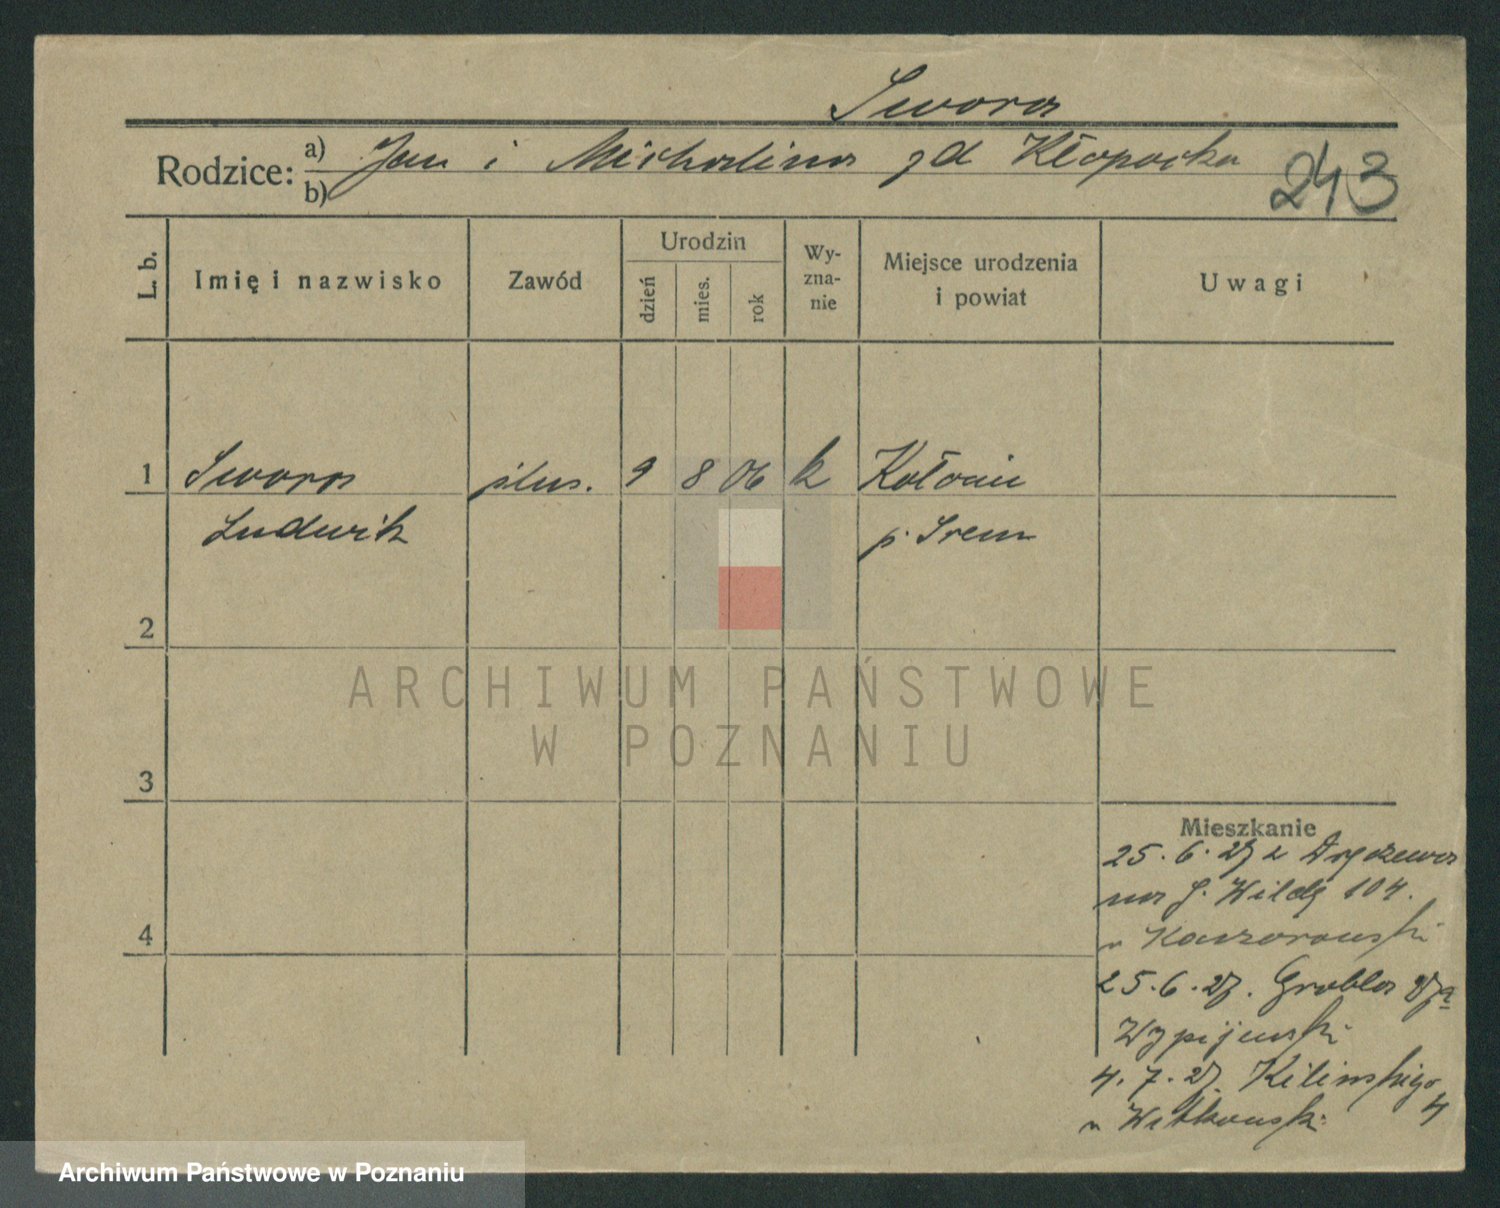 Swora
Rodzice: a) Jan i Michalina zd Kłopocka
b)
243
L. b.
Imię i nazwisko
Zawód
Urodzin
dzień
mies.
rok
Wy-
zna-
nie
Miejsce urodzenia
i powiat
Uwagi
1 Swora ślus. 9 8 06 k
Ludwik p. Śrem
2
3
4
Mieszkanie
25.6.27 z
na G. Wildę 104.
u Kaczorowski
25.6.27. Grobla
Wypijewski
4.7.27. Kilińskiego
4
u Witkowski
ARCHIWUM PAŃSTWOWE
W POZNANIU
Archiwum Państwowe w Poznaniu